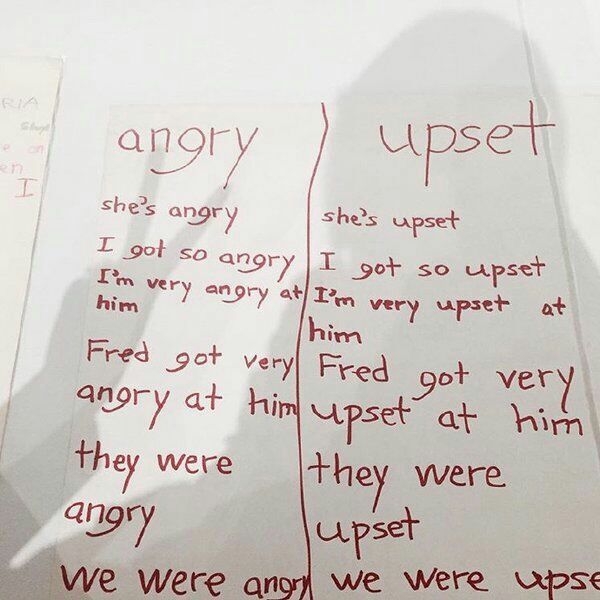 RIA
en
I
angry
she's angry
I got so angry
I'm very angry at
him
Fred got very
angry at him
they were
angry
We were angry
upset
she's upset
I got so upset
I'm very upset at
him
Fred got very
upset at him
they were
upset
we were upse